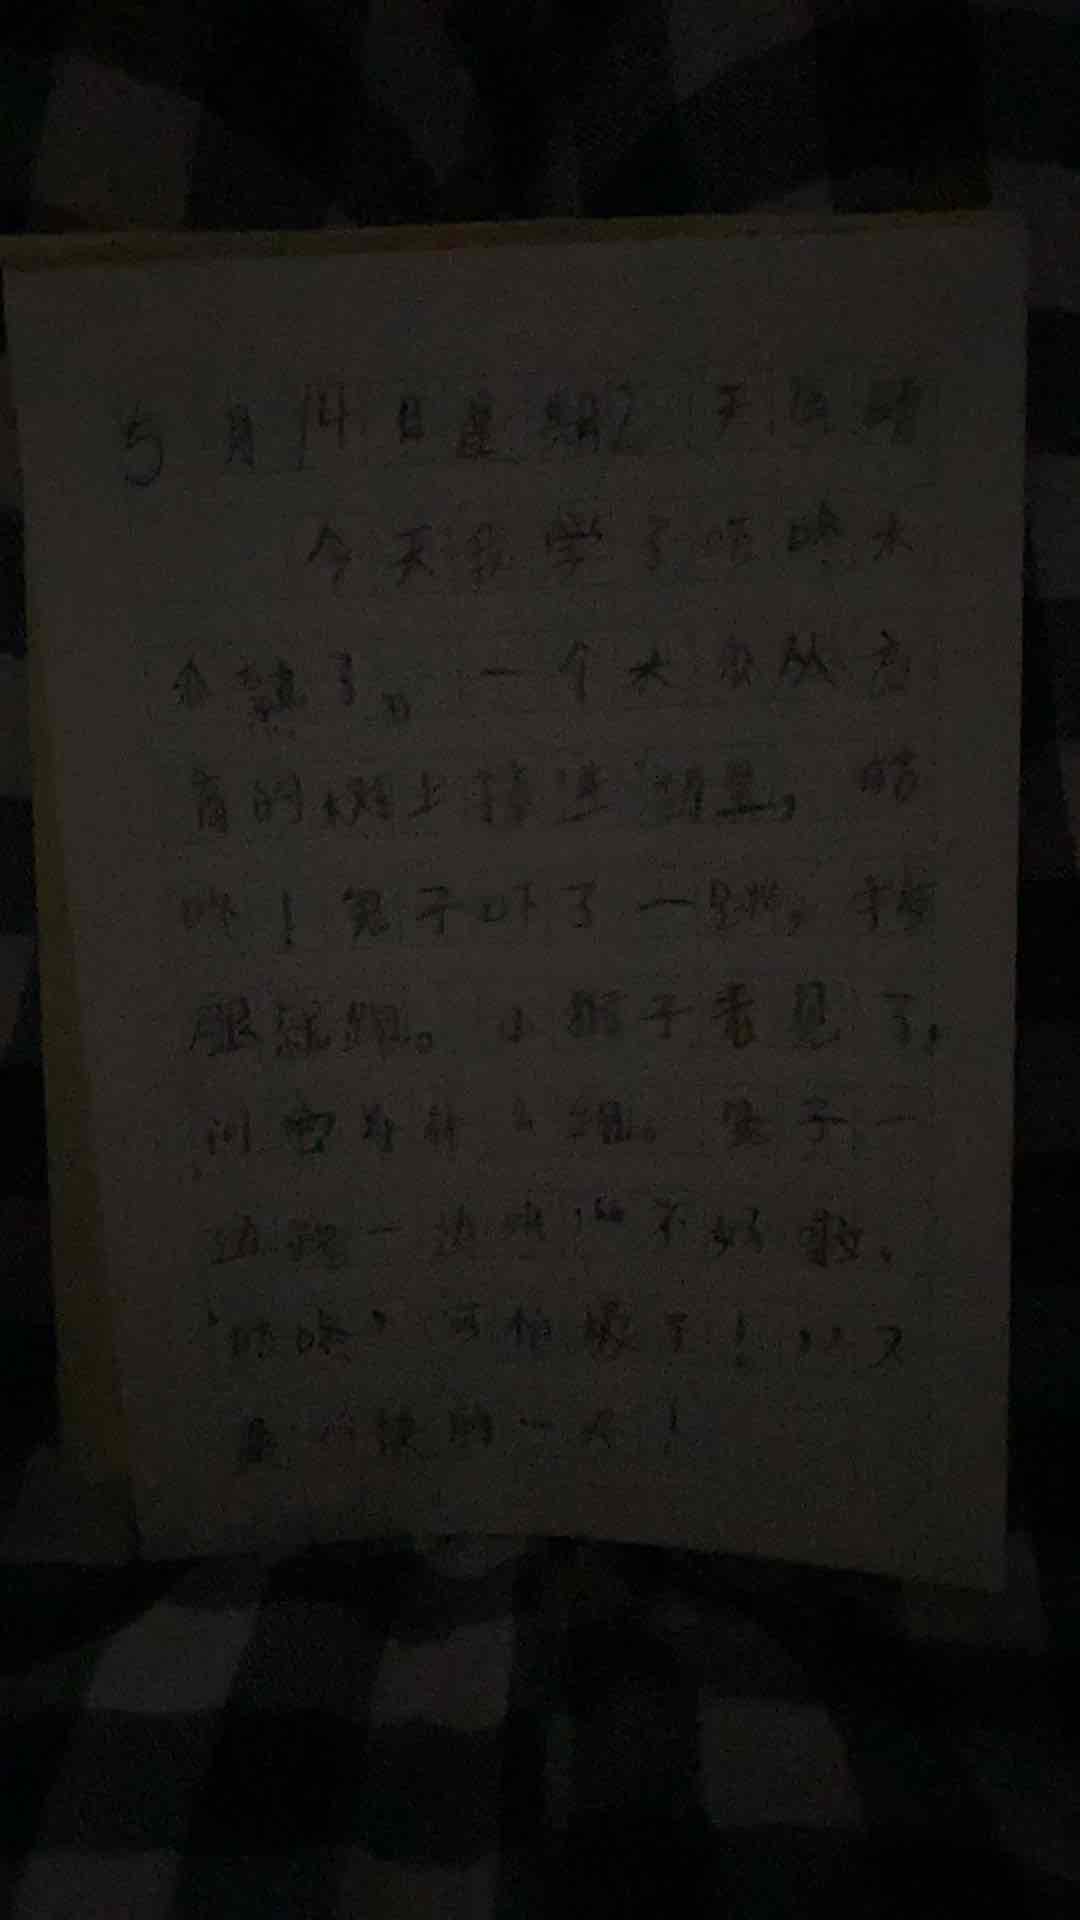 5月14日星期2 天气晴
今天我学了咕咚木
瓜熟了。一个木瓜从高
高的树上掉进湖里，咕
咚！兔子吓了一跳，
腿就跑。小猴子看见了，
问它为什么跑。兔子一
边跑一边喊：“不好啦，
‘咕咚’可怕极了！又
是愉快的一天！